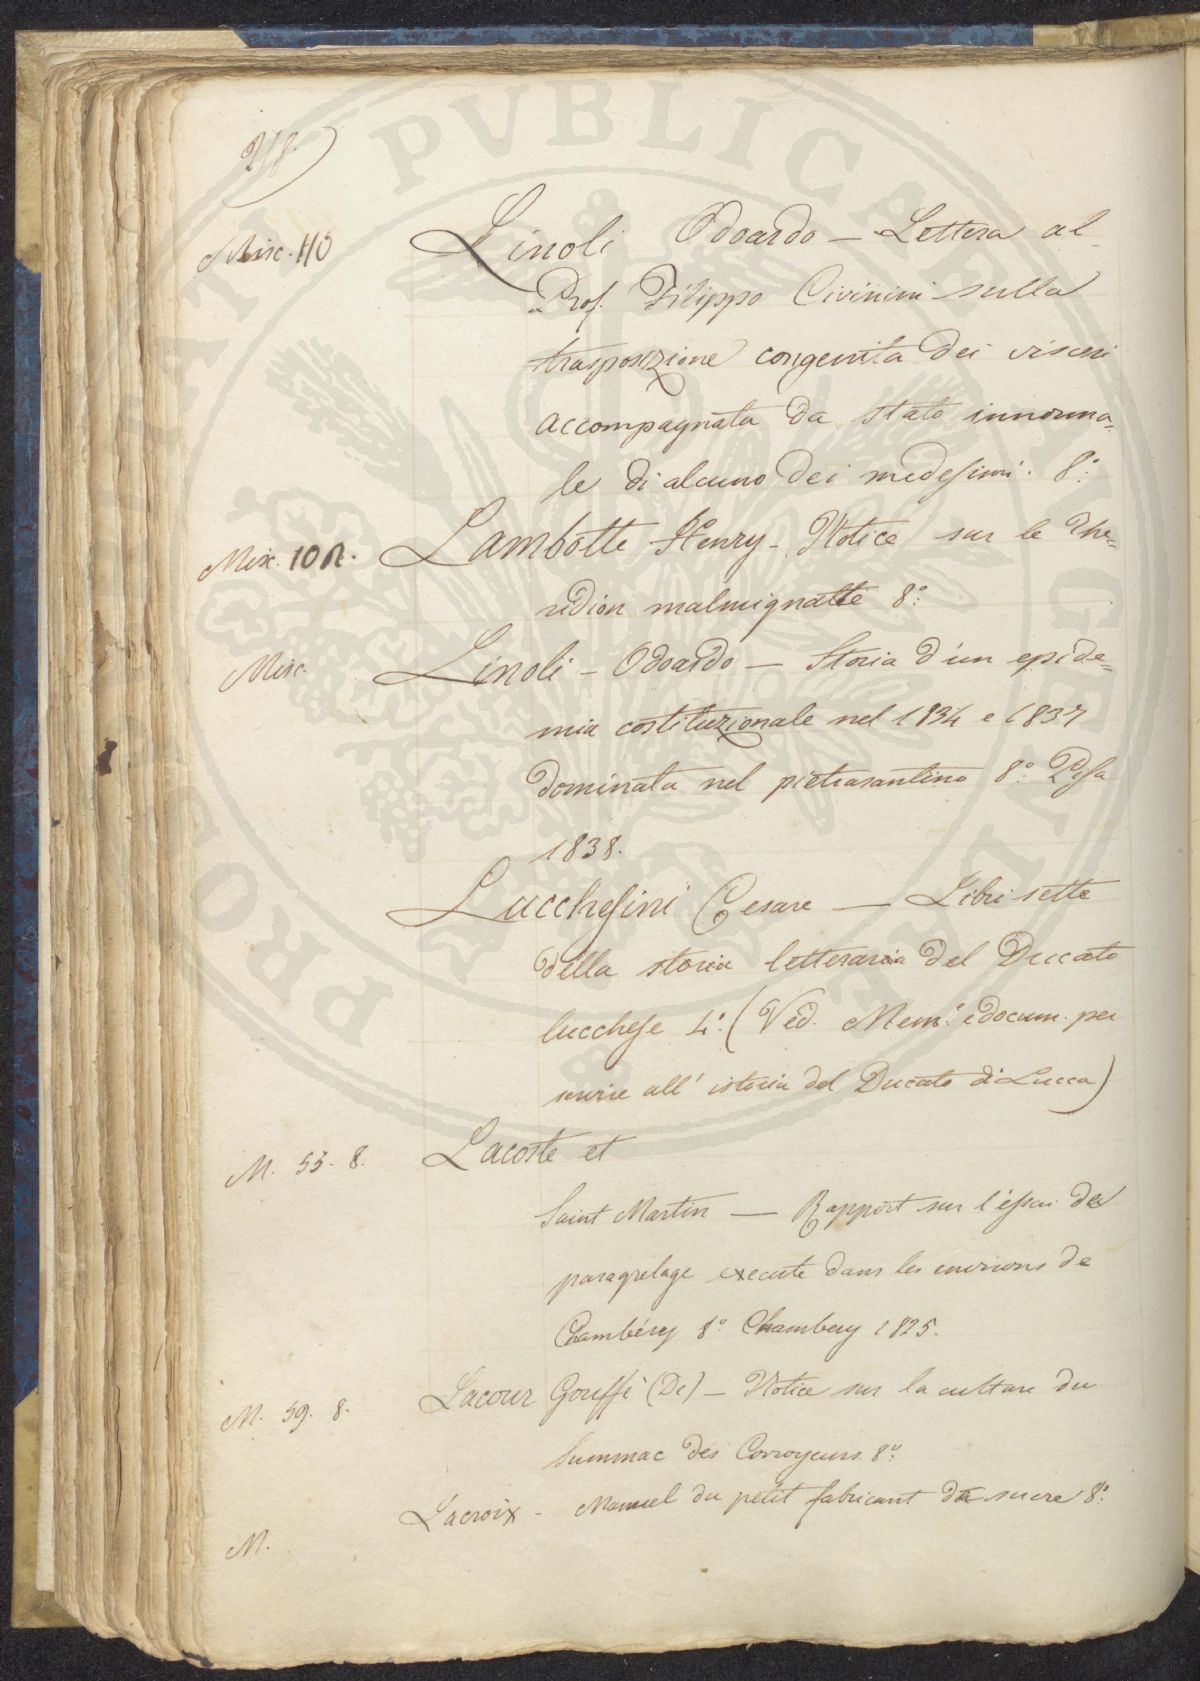 218.
Misc. 110 Linoli Odoardo — Lettera al
Prof. Filippo Civinini sulla
trasposizione congenita dei visceri
accompagnata da stato innorma=
le di alcuno dei medesimi. 8°:
Misc. 102. Lambotte Henry - Notice sur le The=
ridion malmignatte 8°:
Misc. Linoli - Odoardo — Storia d'un epide=
mia costituzionale nel 1834 e 1837
dominata nel pietrasantino 8°: Pisa
1838.
Lucchesini Cesare — Libri sette
della storia letteraria del Ducato
lucchese 4°. (Ved. Mem.e e docum. per
servire all' istoria del Ducato di Lucca)
M. 53. 8. Lacoste et
Saint Martin — Rapport sur l'essai de
paragrelage execute dans les environs de
Chambéry 8° Chambery 1825.
M. 59. 8. Lacour Gouffé (De) — Notice sur la culture du
Summac des Corroyeurs 8°:
M. Lacroix - Manuel du petit fabricant de sucre 8°:
PROSPERITATI PVBLICAE AVGENDAE